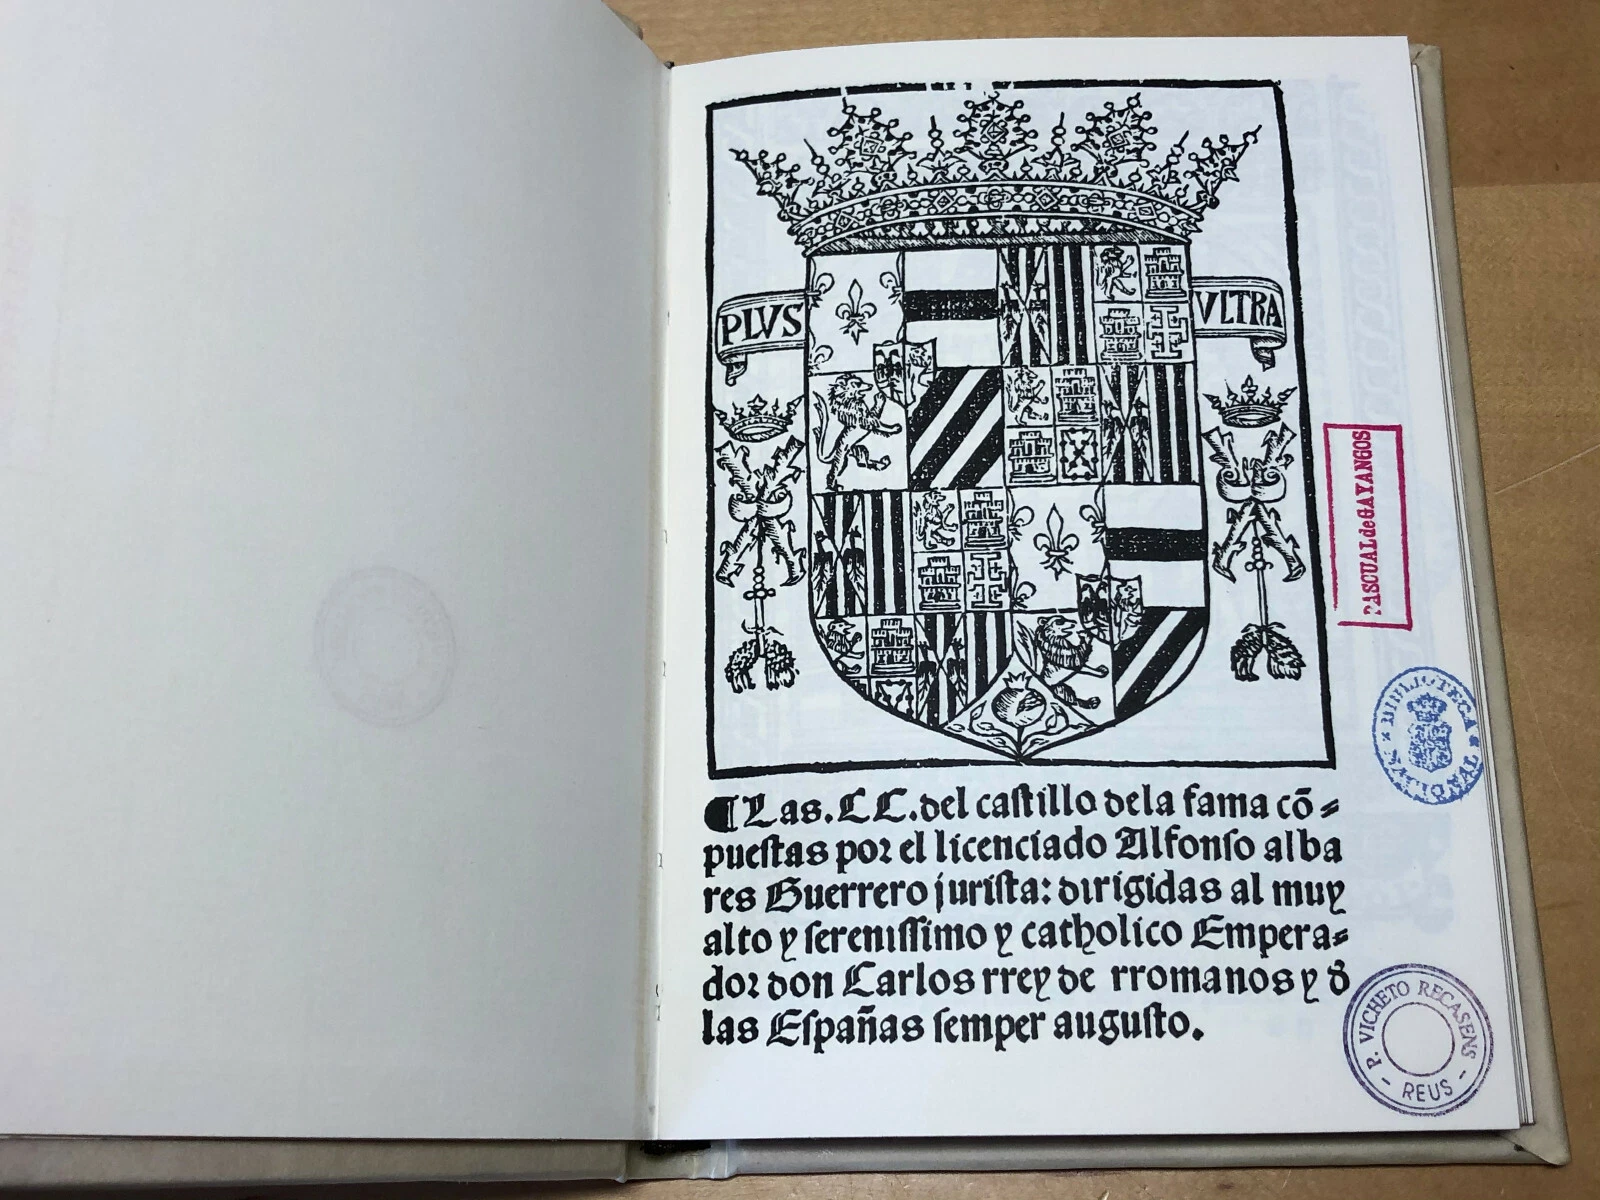 PLVS
VLTRA
PASCUAL de GAYANGOS
BIBLIOTECA NACIONAL
¶ Las .CC. del castillo dela fama cō-
puestas por el licenciado Alfonso alba
res Guerrero jurista: dirigidas al muy
alto y serenissimo y catholico Empera-
dor don Carlos rrey de rromanos y đ
las Españas semper augusto.
P. VICHETO RECASENS
- REUS -